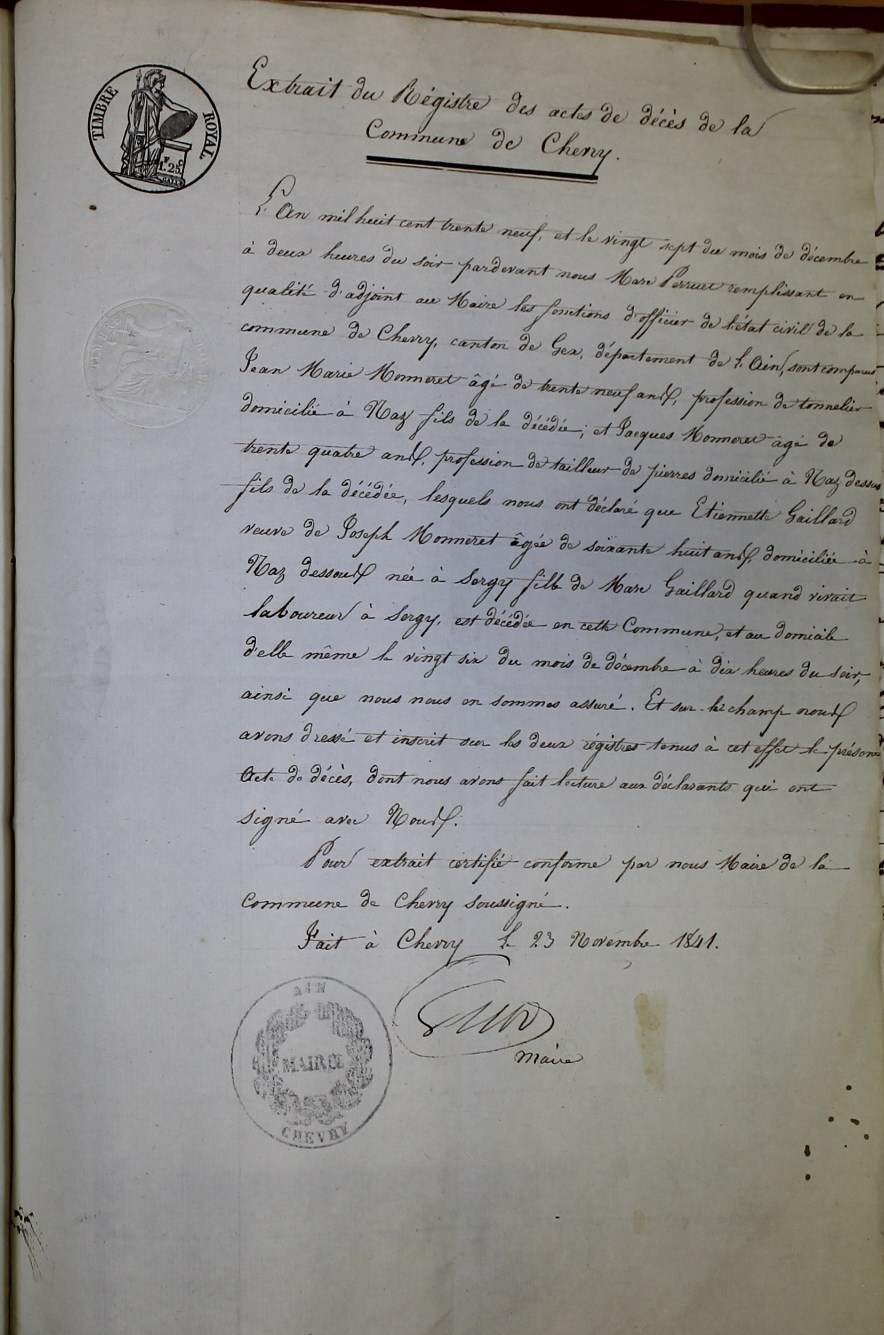 TIMBRE ROYAL
1F.25C
Extrait du Régistre des actes de décès de la
Commune de Chevry.
L'An mil huit cent trente neuf, et le vingt sept du mois de décembre
à deux heures du soir pardevant nous Marc Perruet remplissant en
qualité d'adjoint au Maire les fonctions d'officier de l'état civil de la
commune de Chevry, canton de Gex, département de l'Ain, sont comparus
Jean Marie Monneret âgé de trente neuf ans, profession de tonnelier
domicilié à Naz fils de la décédée; et Jacques Monneret âgé de
trente quatre ans, profession de tailleur de pierres domicilié à Naz dessus
fils de la décédée, lesquels nous ont déclaré que Etiennette Gaillard
veuve de Joseph Monneret âgée de soixante huit ans, domiciliée à
Naz dessous née à Sergy fille de Marc Gaillard quand vivait
laboureur à Sergy, est décédée en cette Commune, et au domicile
d'elle même le vingt six du mois de décembre à dix heures du soir,
ainsi que nous nous en sommes assuré. Et sur-le champ nous
avons dressé et inscrit sur les deux régistres tenus à cet effet le présent
Acte de décès, dont nous avons fait lecture aux déclarants qui ont
signé avec Nous.
Pour extrait certifié conforme par nous Maire de la
Commune de Chevry soussigné.
Fait à Chevry le 23 Novembre 1841.
Maire
AIN
MAIRIE
CHEVRY